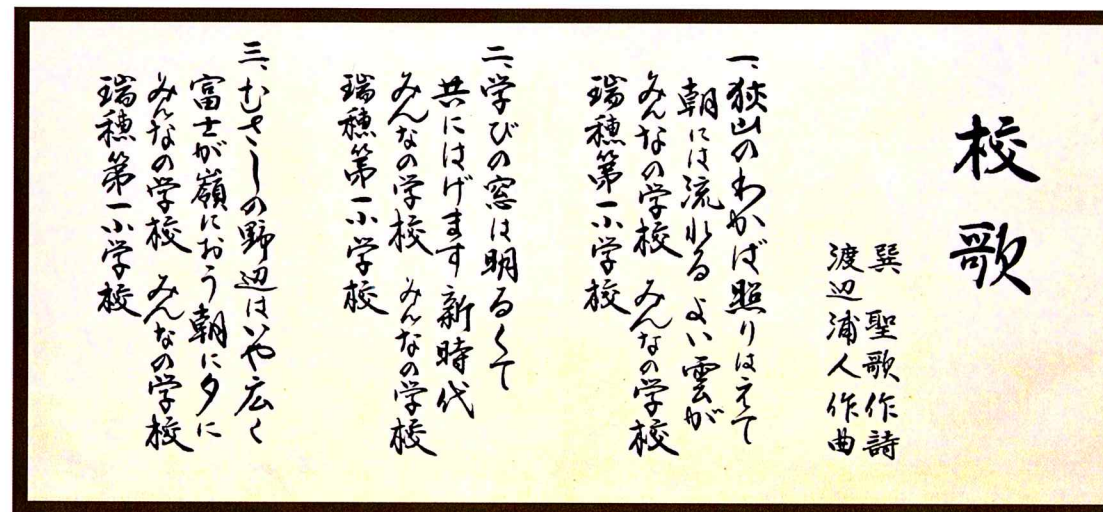 校歌
巽 聖歌作詩
渡辺浦人作曲
一、狭山のわかば照りはえて
朝には流れるよい雲が
みんなの学校 みんなの学校
瑞穂第一小学校
二、学びの窓は明るくて
共にはげます新時代
みんなの学校 みんなの学校
瑞穂第一小学校
三、むさしの野辺はいや広く
富士が嶺におう朝に夕に
みんなの学校 みんなの学校
瑞穂第一小学校